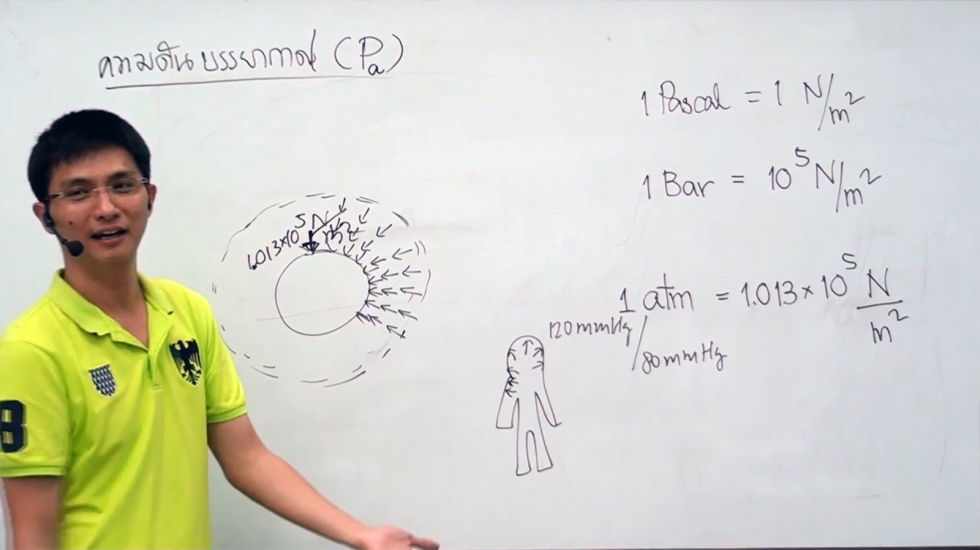 ความดันบรรยากาศ (Pa)
1 Pascal = 1 N/m²
1 Bar = 10⁵ N/m²
1.013×10⁵ N/m²
1 atm = 1.013 × 10⁵ N/m²
120 mmHg/80 mmHg
B